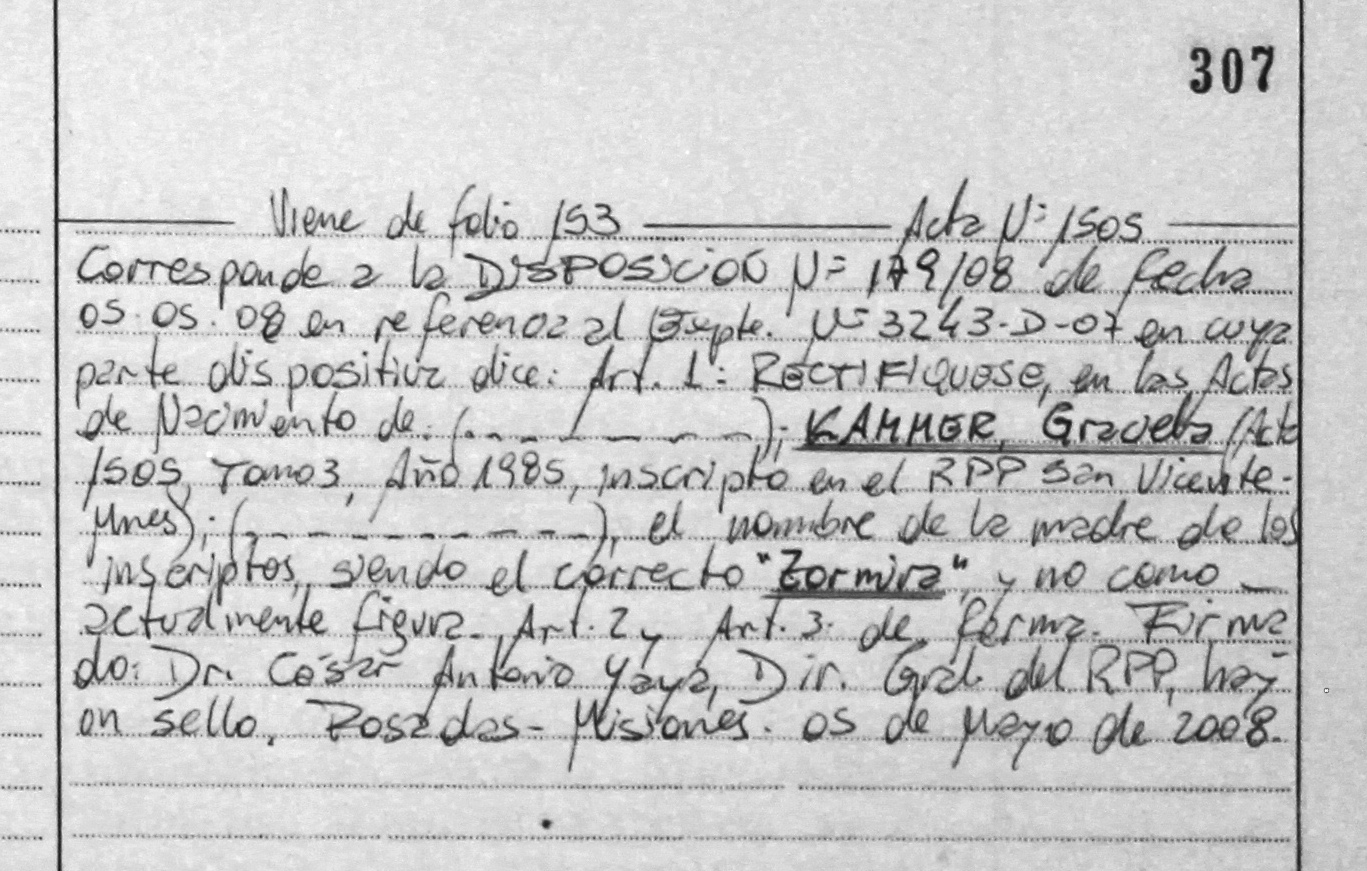 307
Viene de folio 153 ——— Acta Nº 1505
Corresponde a la DISPOSICION Nº 179/08 de fecha
05.05.08 en referencia al Expte. Nº 3243-D-07 en cuya
parte dispositiva dice: Art. 1: RECTIFIQUESE, en las Actas
de Nacimiento de: (- - - - - - -); KAMMER, Graciela (Acta
1505, Tomo 3, Año 1985, inscripto en el RPP San Vicente-
Mnes); (- - - - - - - - -), el nombre de la madre de los
inscriptos, siendo el correcto "Zormira", y no como -
actualmente figura. Art. 2 y Art. 3: de forma. Firma
do: Dr. César Antonio Yaya, Dir. Gral. del RPP, hay
un sello. Posadas - Misiones. 05 de Mayo de 2008.